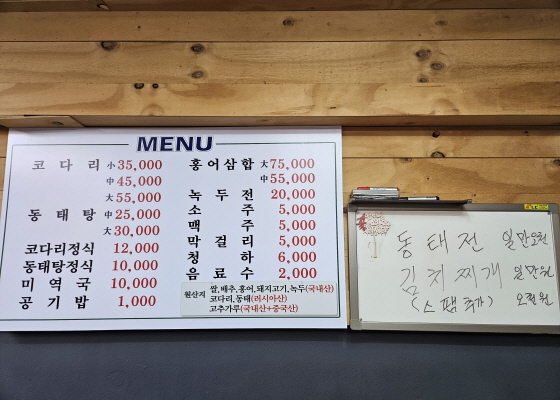 MENU
코다리 小 35,000
中 45,000
大 55,000
동태탕 中 25,000
大 30,000
코다리정식 12,000
동태탕정식 10,000
미역국 10,000
공기밥 1,000
홍어삼합 大 75,000
中 55,000
녹두전 20,000
소주 5,000
맥주 5,000
막걸리 5,000
청하 6,000
음료수 2,000
원산지 쌀,배추,홍어,돼지고기,녹두(국내산)
코다리,동태(러시아산)
고추가루(국내산+중국산)
동태전 일만오천
김치찌개 일만원
(스팸추가) 오천원